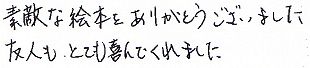 素敵な絵本をありがとうございました
友人も、とても喜んでくれました